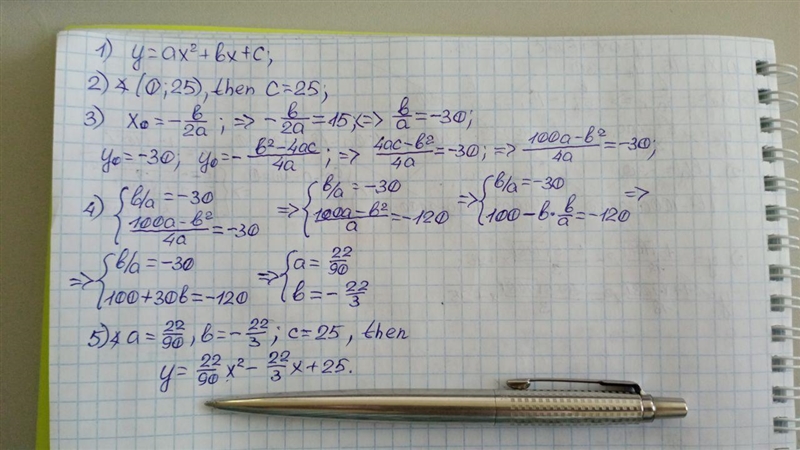 1) y=ax²+bx+c;
2) ∢ (0;25), then c=25;
3) x₀=-b/2a; => -b/2a=15; <=> b/a=-30;
y₀=-30; y₀=-(b²-4ac)/4a; => (4ac-b²)/4a=-30; => (100a-b²)/4a=-30;
4) { b/a=-30 (100a-b²)/4a=-30 => { b/a=-30 (100a-b²)/a=-120 => { b/a=-30 100-b·b/a=-120 =>
=> { b/a=-30 100+30b=-120 => { a=22/90 b=-22/3
5) ∢ a=22/90, b=-22/3; c=25, then
y=22/90x²-22/3x+25.